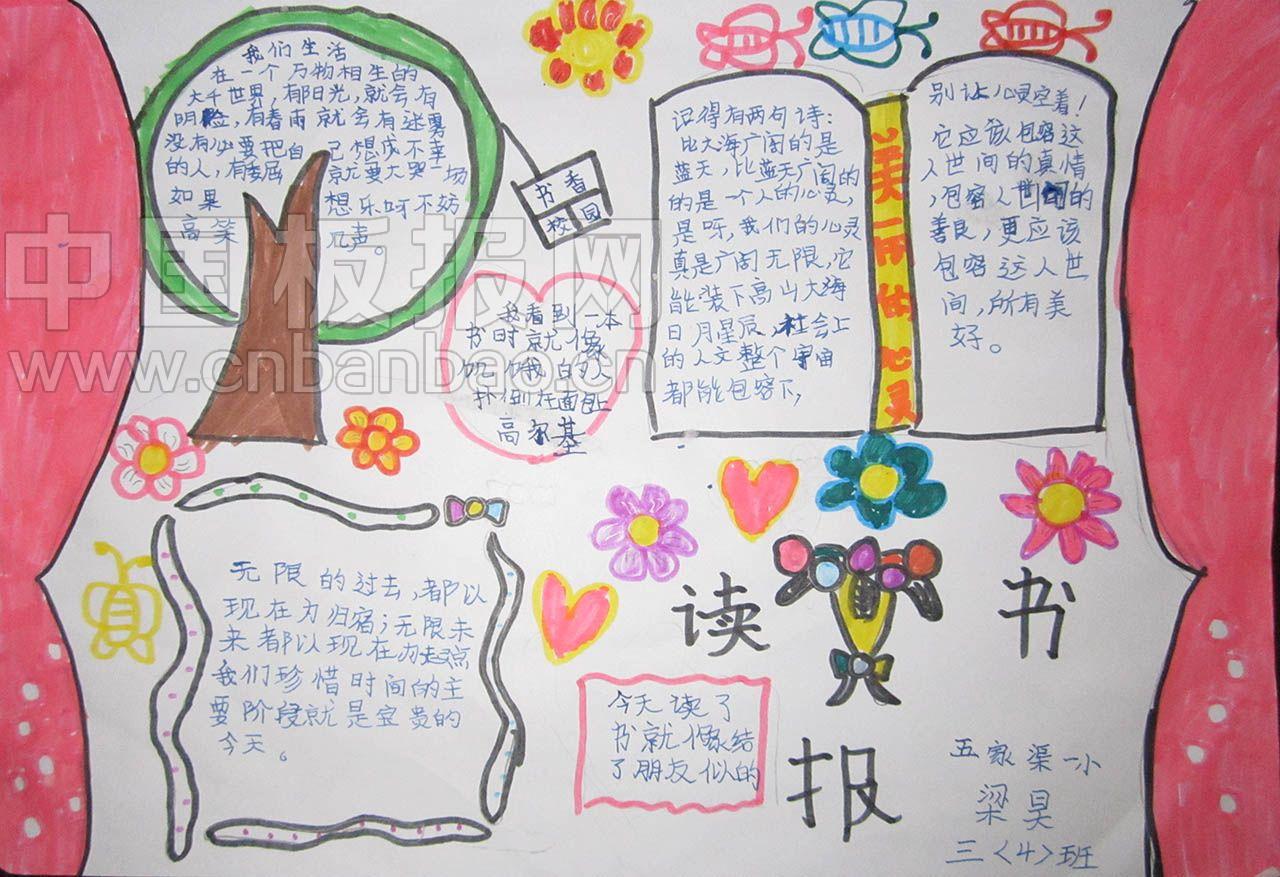 我们生活
在一个万物相生的
大千世界，有阳光，就会有
明脸，有春雨就会有迷雾
没有必要把自己想成不幸
的人，有委屈就要大哭一场
如果想乐呀不妨
高笑几声。
书香
校园
我看到一本
书时就像
饥饿的人
扑倒在面包上
高尔基
记得有两句诗：
比大海广阔的是
蓝天，比蓝天广阔的
的是一个人的心灵，
是呀，我们的心灵
真是广阔无限，它
能装下高山大海
日月星辰，社会上
的人文整个宇宙
都能包容下，
心灵
别让心灵空着！
它应该包容这
人世间的真情
，包容人世间的
善良，更应该
包容这人世
间，所有美
好。
无限的过去，都以
现在为归宿；无限未
来都以现在为起点
我们珍惜时间的主
要阶段就是宝贵的
今天。
读书
报
今天读了
书就像结
了朋友似的
五家渠一小
梁昊
三<4>班
中国板报网
www.cnbanbao.cn